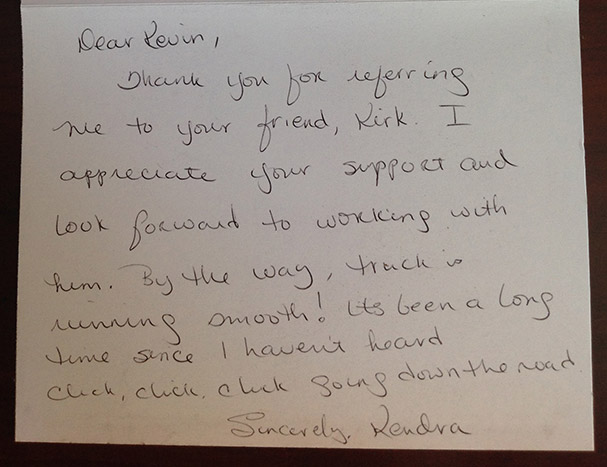 Dear Kevin,
Thank you for referring
me to your friend, Kirk. I
appreciate your support and
look forward to working with
him. By the way, truck is
running smooth! Its been a long
time since I haven't heard
click, click, click going down the road
Sincerely, Kendra